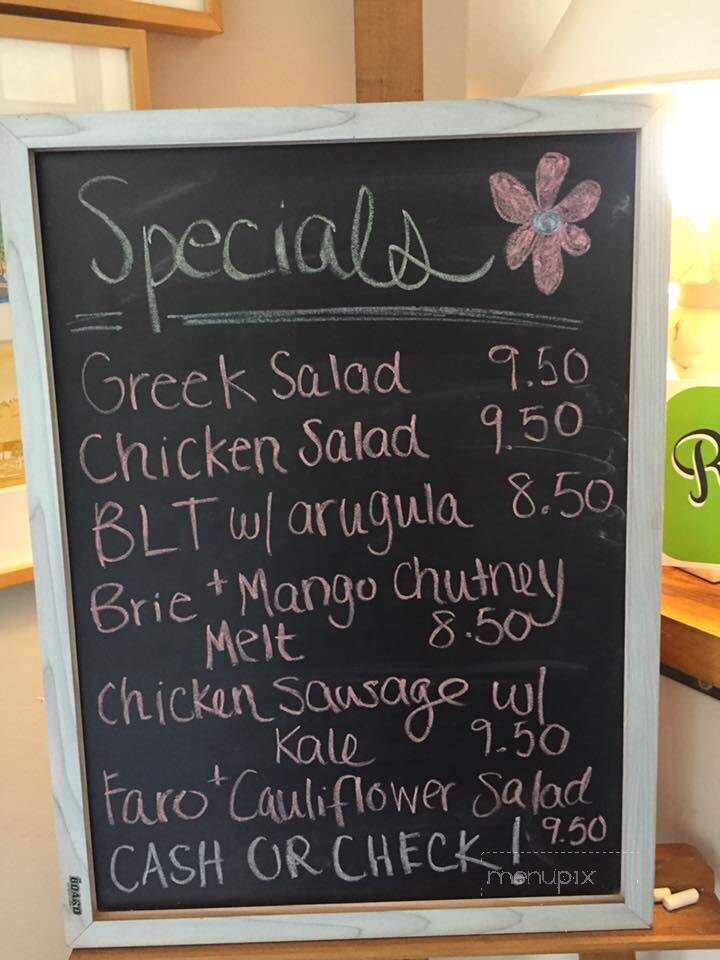 Specials
Greek Salad 9.50
Chicken Salad 9.50
BLT w/ arugula 8.50
Brie + Mango Chutney
Melt 8.50
Chicken Sausage w/
Kale 9.50
Faro + Cauliflower Salad
9.50
CASH OR CHECK!
menupix
BOARD
R